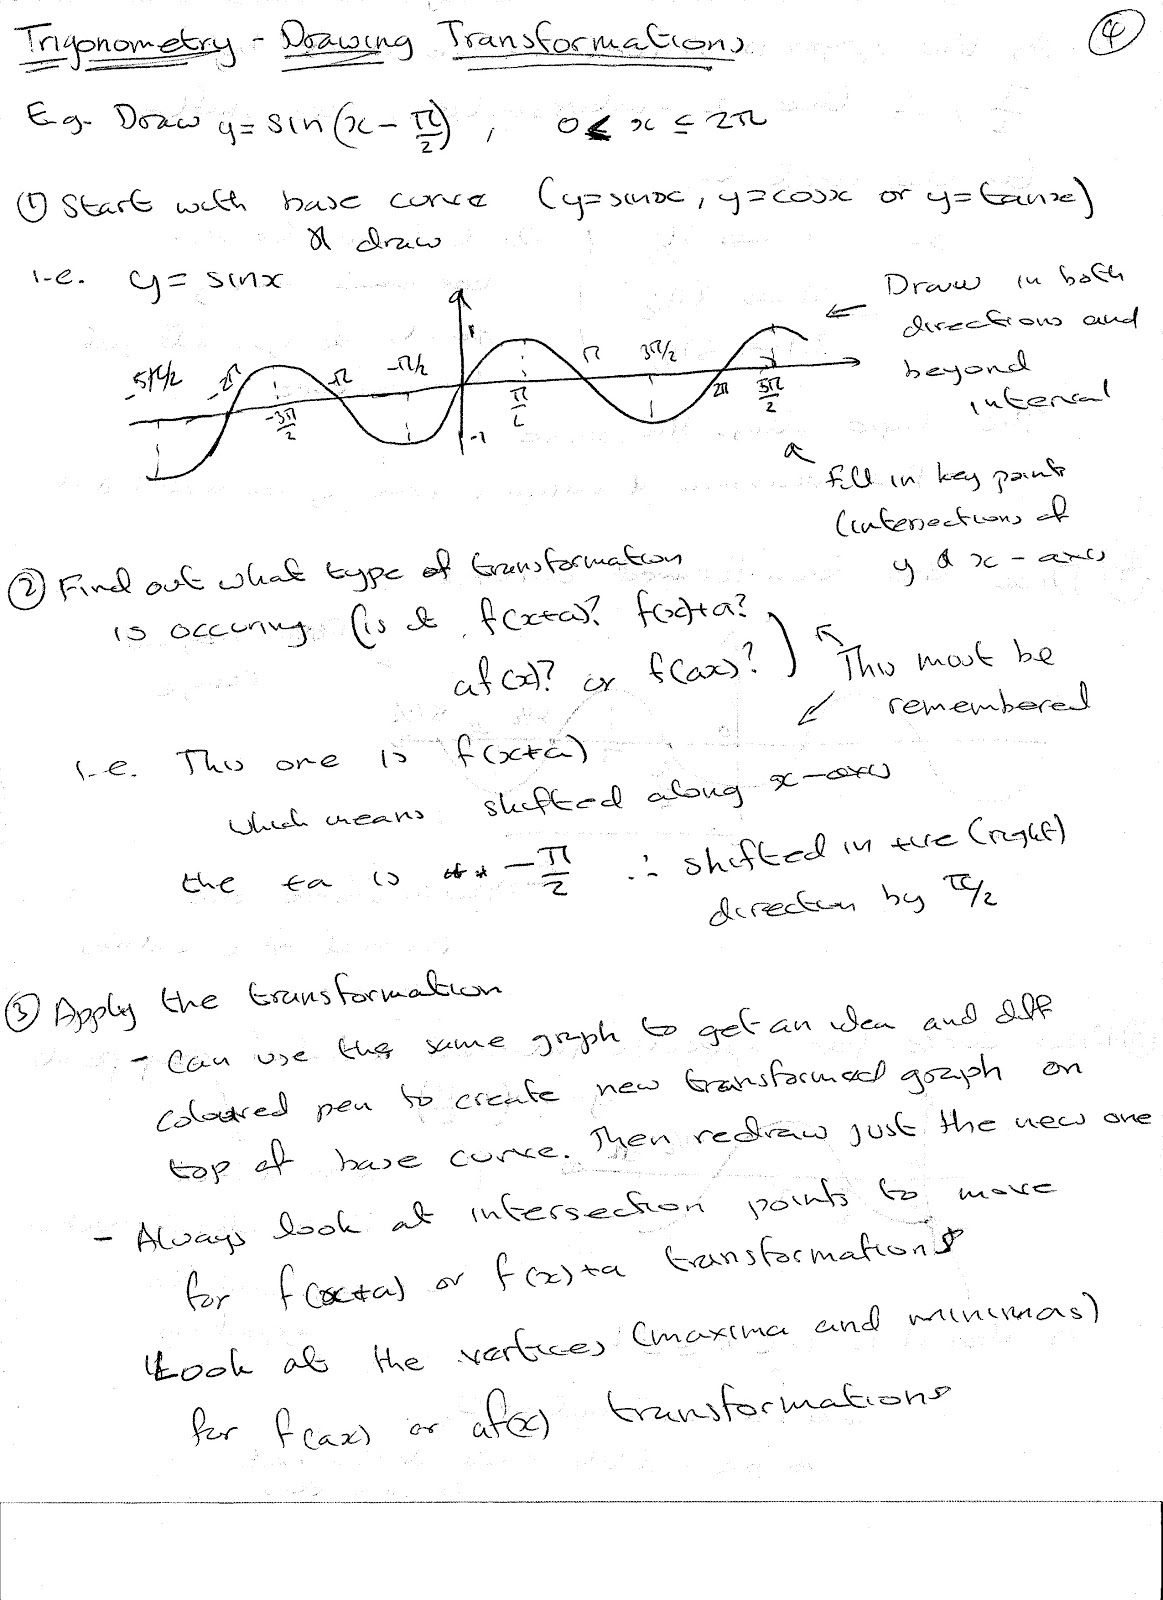 Trigonometry - Drawing Transformations
4
E.g. Draw y = sin(x - π/2) , 0 ≤ x ≤ 2π
① Start with base curve (y=sinx, y=cosx or y=tanx)
& draw
i.e. y = sinx
Draw in both
directions and
beyond
interval
1
-5π/2 -2π -π -π/2 π 3π/2
-3π/2 π/2 2π 5π/2
-1
Fill in key points
(intersections of
y & x-axis
② Find out what type of transformation
is occuring (is it f(x+a)? f(x)+a?
af(x)? or f(ax)?)
This must be
remembered
i.e. This one is f(x+a)
which means shifted along x-axis
the +a is -π/2 ∴ shifted in +ve (right)
direction by π/2
③ Apply the transformation
- Can use the same graph to get an idea and diff
coloured pen to create new transformed graph on
top of base curve. Then redraw just the new one
- Always look at intersection points to move
for f(x+a) or f(x)+a transformations
Look at the vertices (maxima and minimas)
for f(ax) or af(x) transformations